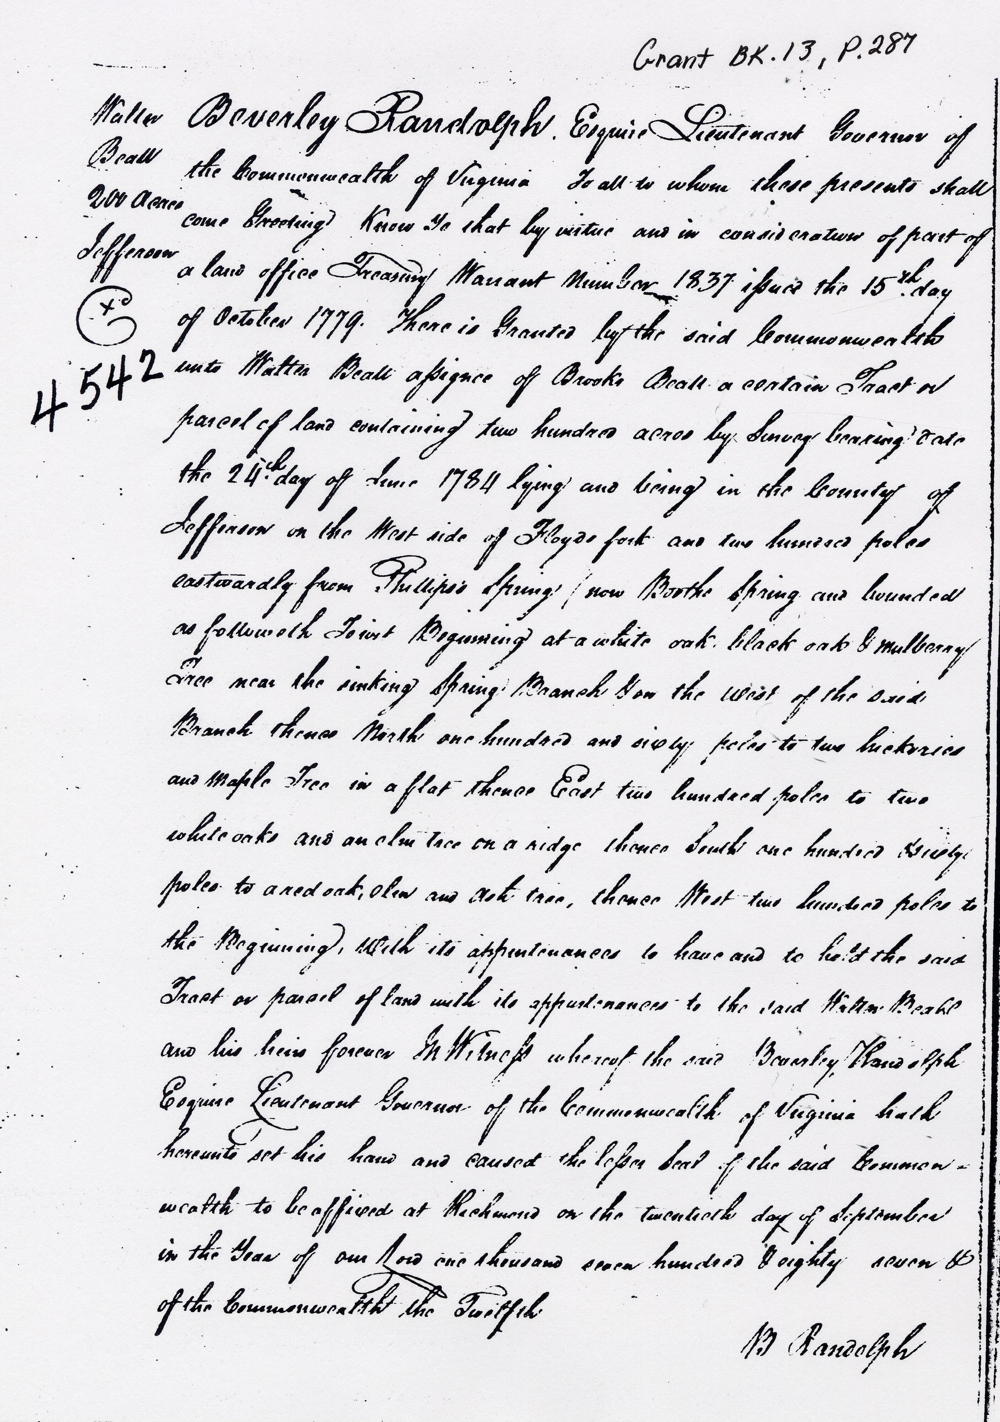 Grant BK. 13, P. 287
Walter
Beall
200 Acres
Jefferson
4542
Beverley Randolph. Esquire Lieutenant Governor of
the Commonwealth of Virginia To all to whom these presents shall
come Greeting Know Ye that by virtue and in consideration of part of
a land office Treasury Warrant Number 1837 issued the 15th day
of October 1779. There is Granted by the said Commonwealth
unto Walter Beall assignee of Brooke Beall a certain Tract or
parcel of land containing two hundred acres by Survey bearing date
the 24th day of June 1784 lying and being in the County of
Jefferson on the West side of Floyds fork and two hundred poles
eastwardly from Phillips's Spring / now Booths Spring and bounded
as followeth Towit Beginning at a white oak. black oak & mulberry
Tree near the sinking Spring Branch & on the west of the said
Branch thence North one hundred and sixty poles to two hickories
and Maple Tree in a flat thence East two hundred poles to two
white oaks and an elm tree on a ridge thence South one hundred & sixty
poles to a red oak, Elm and Ash tree, thence West two hundred poles to
the Beginning, With its appurtenances to have and to hold the said
Tract or parcel of land with its appurtenances to the said Walter Beall
and his heirs forever In Witness whereof the said Beverley Randolph
Esquire Lieutenant Governor of the Commonwealth of Virginia hath
hereunto set his hand and caused the lesser Seal of the said Common-
wealth to be affixed at Richmond on the twentieth day of September
in the Year of our Lord one thousand seven hundred & eighty seven &
of the Commonwealth the Twelfth
B Randolph